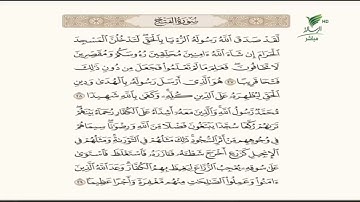 سورة الفتح
لقد صدق الله رسوله الرءيا بالحق لتدخلن المسجد
الحرام إن شاء الله ءامنين محلقين رءوسكم ومقصرين
لا تخافون فعلم ما لم تعلموا فجعل من دون ذلك
فتحا قريبا ٢٧ هو الذي أرسل رسوله بالهدى ودين
الحق ليظهره على الدين كله وكفى بالله شهيدا ٢٨
محمد رسول الله والذين معه أشداء على الكفار رحماء بينهم
تراهم ركعا سجدا يبتغون فضلا من الله ورضوانا سيماهم
في وجوههم من أثر السجود ذلك مثلهم في التوراة ومثلهم في
الإنجيل كزرع أخرج شطأه فآزره فاستغلظ فاستوى
على سوقه يعجب الزراع ليغيظ بهم الكفار وعد الله الذين
ءامنوا وعملوا الصالحات منهم مغفرة وأجرا عظيما ٢٩
HD
مباشر